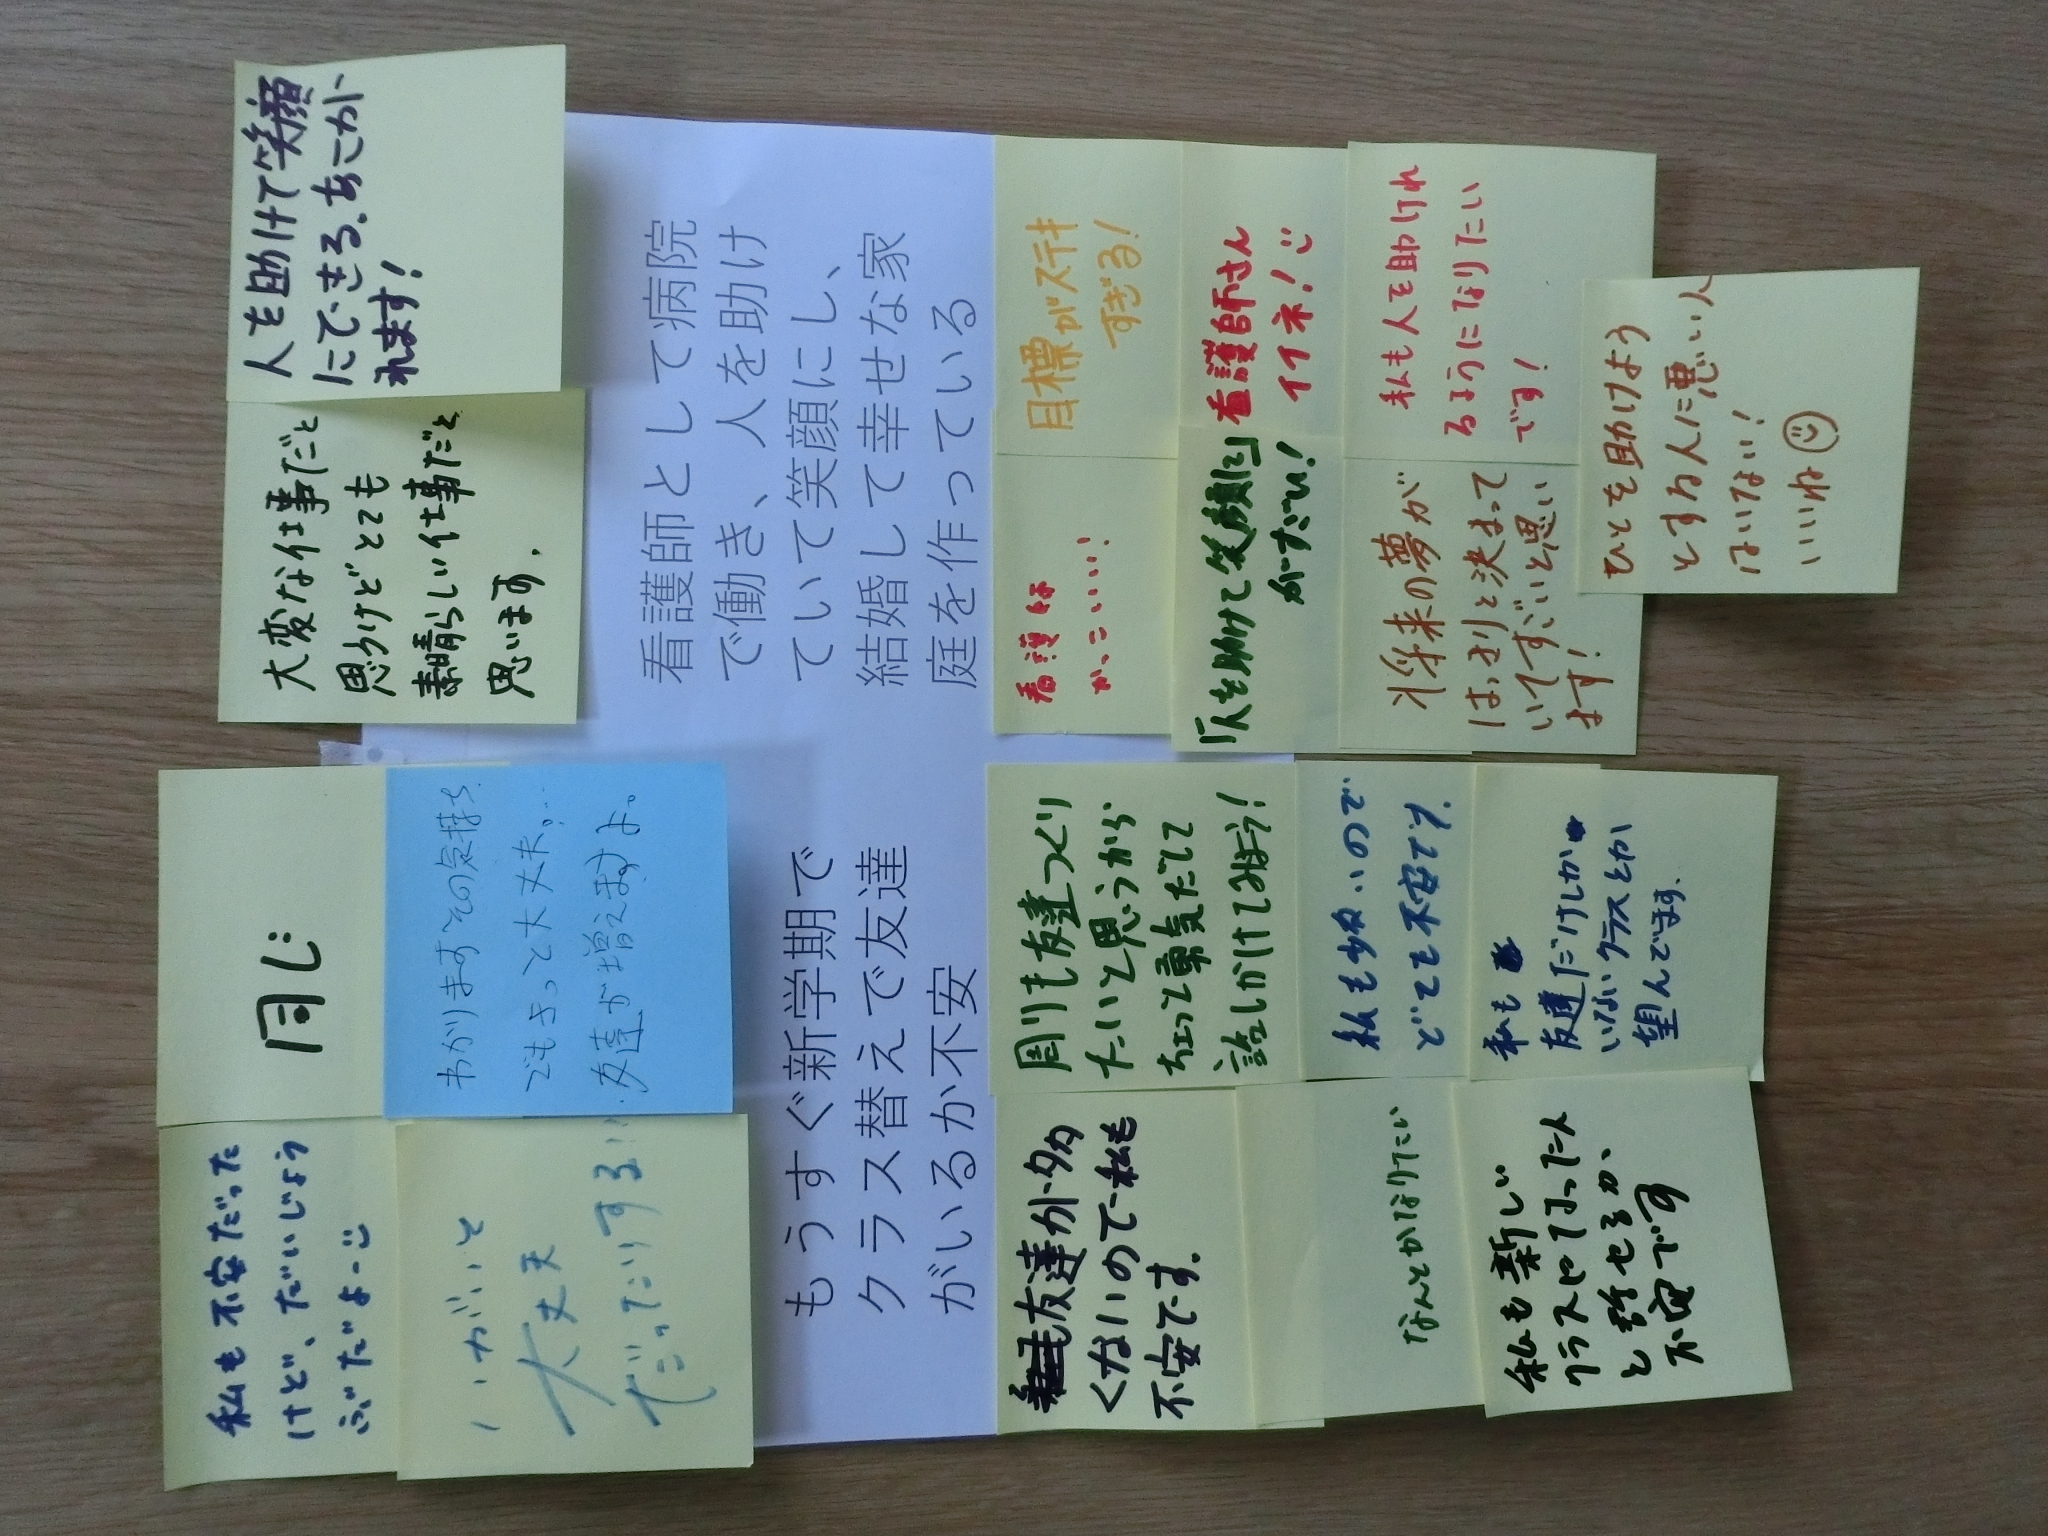 私も不安だった
けど、だいじょう
ぶだよー
同じ
大丈夫
だったりする!!
わかりますその気持ち。
でもきっと大丈夫。…
友達が増えますよ。
もうすぐ新学期で
クラス替えで友達
がいるか不安
友達が多
くないので私も
不安です。
周りも友達つくり
たいと思うから
ちょっと勇気だして
話しかけてみよう!
なんとかなりたい
私も少ないので
とても不安です。
私も新しい
クラスになった人
と話せるか、
不安です
私も
友達だけしか
いないクラスとか
望んでます。
大変な仕事だと
思うけどとても
素晴らしい仕事だと
思います。
人を助けて笑顔
にできる、あこが
れます!
看護師として病院
で働き、人を助け
ていて笑顔にし、
結婚して幸せな家
庭を作っている
看護師
かっこいい!
目標がステキ
すぎる!
「人を助けて笑顔に」
がすごい!
看護師さん
イイネ!
将来の夢が
はっきりと決まって
いてすごいと思い
ます!
私も人を助けれ
るようになりたい
です!
ひとを助けよう
とする人に悪い人
はいない!
いいね